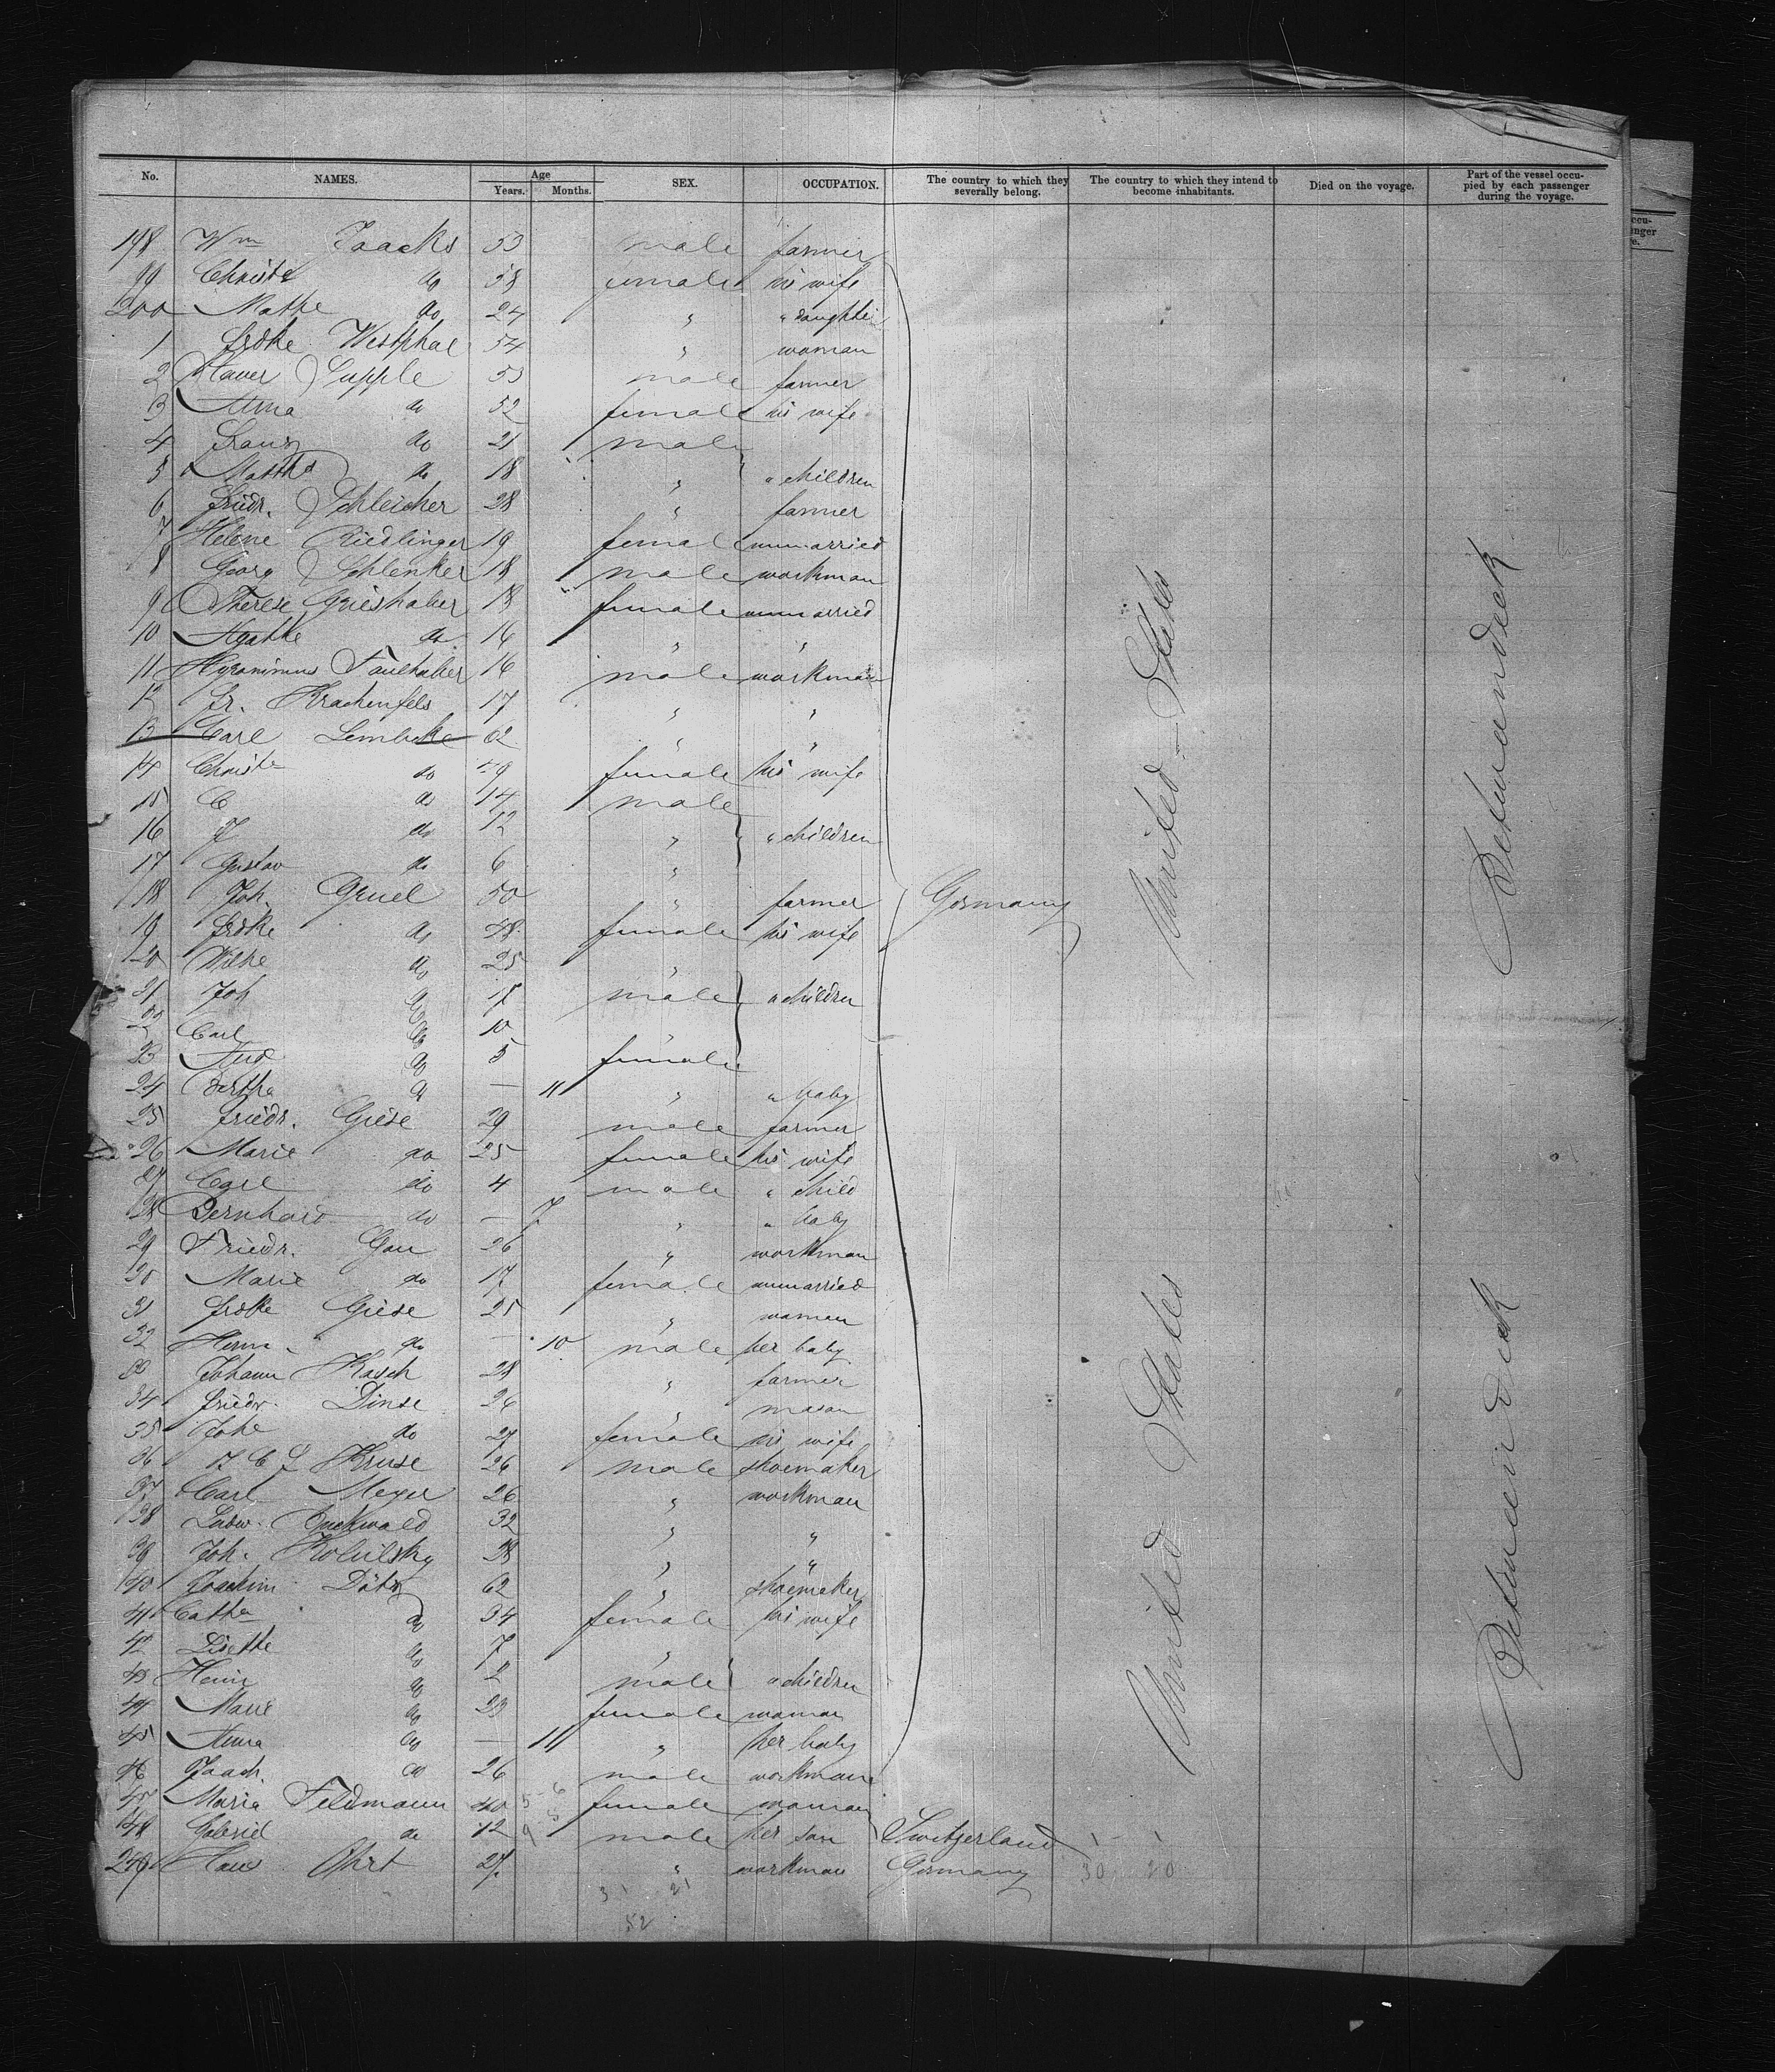 No. NAMES. Age Years. Months. SEX. OCCUPATION. The country to which they severally belong. The country to which they intend to become inhabitants. Died on the voyage. Part of the vessel occupied by each passenger during the voyage.
198 Wm Jaacks 53 male farmer
99 Christe do 58 female his wife
200 Mathe do 24 " " daughter
1 Fredke Westphal 54 " woman
2 Xaver Supple 53 male farmer
3 Anna do 52 female his wife
4 Franz do 21 male
5 do 18 " " children
6 Friedr. Schleicher 28 " farmer
7 Helene Riedlinger 19 female unmarried
8 Georg Schlenker 18 male workman
9 Therese Grieshaber 18 female unmarried
10 Agathe do 16 " "
11 Hyronimus Faulhaber 16 male workman
12 Fr. Krachenfels 17 " "
13 Carl Lembcke 62 " "
14 Christe do 59 female his wife
15 C do 14 male
16 J do 12 " " children
17 Gustav do 6 "
18 Joh. Gruel 50 " farmer Germany United States Betweendeck
19 Fredke do 48 female his wife
20 Wilhe do 25 "
21 Joh do 17 male " children
22 Carl do 10
23 do 5 female
24 Bertha do — 11 " " baby
25 Friedr. Giese 29 male farmer
26 Marie do 25 female his wife
27 Carl do 4 male " child
28 Bernhard do — 7 " " baby
29 Friedr. Gau 26 " workman
30 Marie do 17 female unmarried
31 Fredke Giese 25 " woman
32 Herm. do — 10 male her baby
33 Johann Kasch 28 " farmer
34 Friedr. Dinse 26 " mason
35 Johe do 27 female his wife
36 Kruse 26 male shoemaker
37 Carl Meyer 26 " workman
38 Ludw. 32 " "
39 Joh. 28 " "
40 Joachim 62 " shoemaker
41 Cathe do 34 female his wife
42 Lisette do 7 "
43 Heinr do 2 male " children
44 Marie do 23 female woman United States Betweendeck
45 Anna do — 11 " her baby
46 Joach. do 26 male workman
47 Maria Feldmann 40 female woman
48 Gabriel do 12 male her son Switzerland
249 Hans Ohrt 27 " workman Germany
31 21
52
30 20